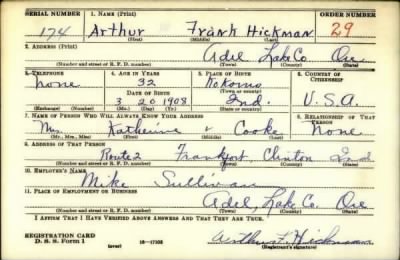 SERIAL NUMBER 1. NAME (Print) ORDER NUMBER
174 Arthur Frank Hickman 29
(First) (Middle) (Last)
2. ADDRESS (Print)
Adel Lake Co. Ore
(Number and street or R. F. D. number) (Town) (County) (State)
3. TELEPHONE 4. AGE IN YEARS 5. PLACE OF BIRTH 6. COUNTRY OF CITIZENSHIP
none 32 Kokomo
DATE OF BIRTH (Town or county)
3 20 1908 Ind. U.S.A.
(Exchange) (Number) (Mo.) (Day) (Yr.) (State or country)
7. NAME OF PERSON WHO WILL ALWAYS KNOW YOUR ADDRESS 8. RELATIONSHIP OF THAT PERSON
Mrs. Katherine Cooke none
(Mr., Mrs., Miss) (First) (Middle) (Last)
9. ADDRESS OF THAT PERSON
Route 2 Frankfort Clinton Ind
(Number and street or R. F. D. number) (Town) (County) (State)
10. EMPLOYER'S NAME
Mike Sullivan
11. PLACE OF EMPLOYMENT OR BUSINESS
Adel, Lake Co. Ore
(Number and street or R. F. D. number) (Town) (County) (State)
I AFFIRM THAT I HAVE VERIFIED ABOVE ANSWERS AND THAT THEY ARE TRUE.
REGISTRATION CARD
D. S. S. Form 1 (over) 16-17105 Arthur F. Hickman
(Registrant's signature)